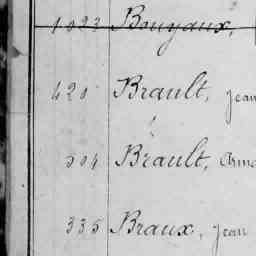 1023 Bouyaux,
420 Brault, Jean
304 Brault, Arma
335 Braux, Jean